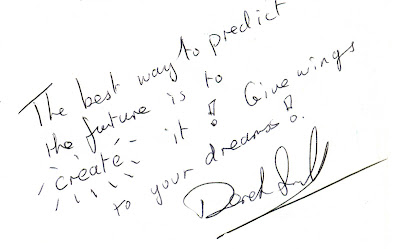 The best way to predict
the future is to
create it! Give wings
to your dreams!